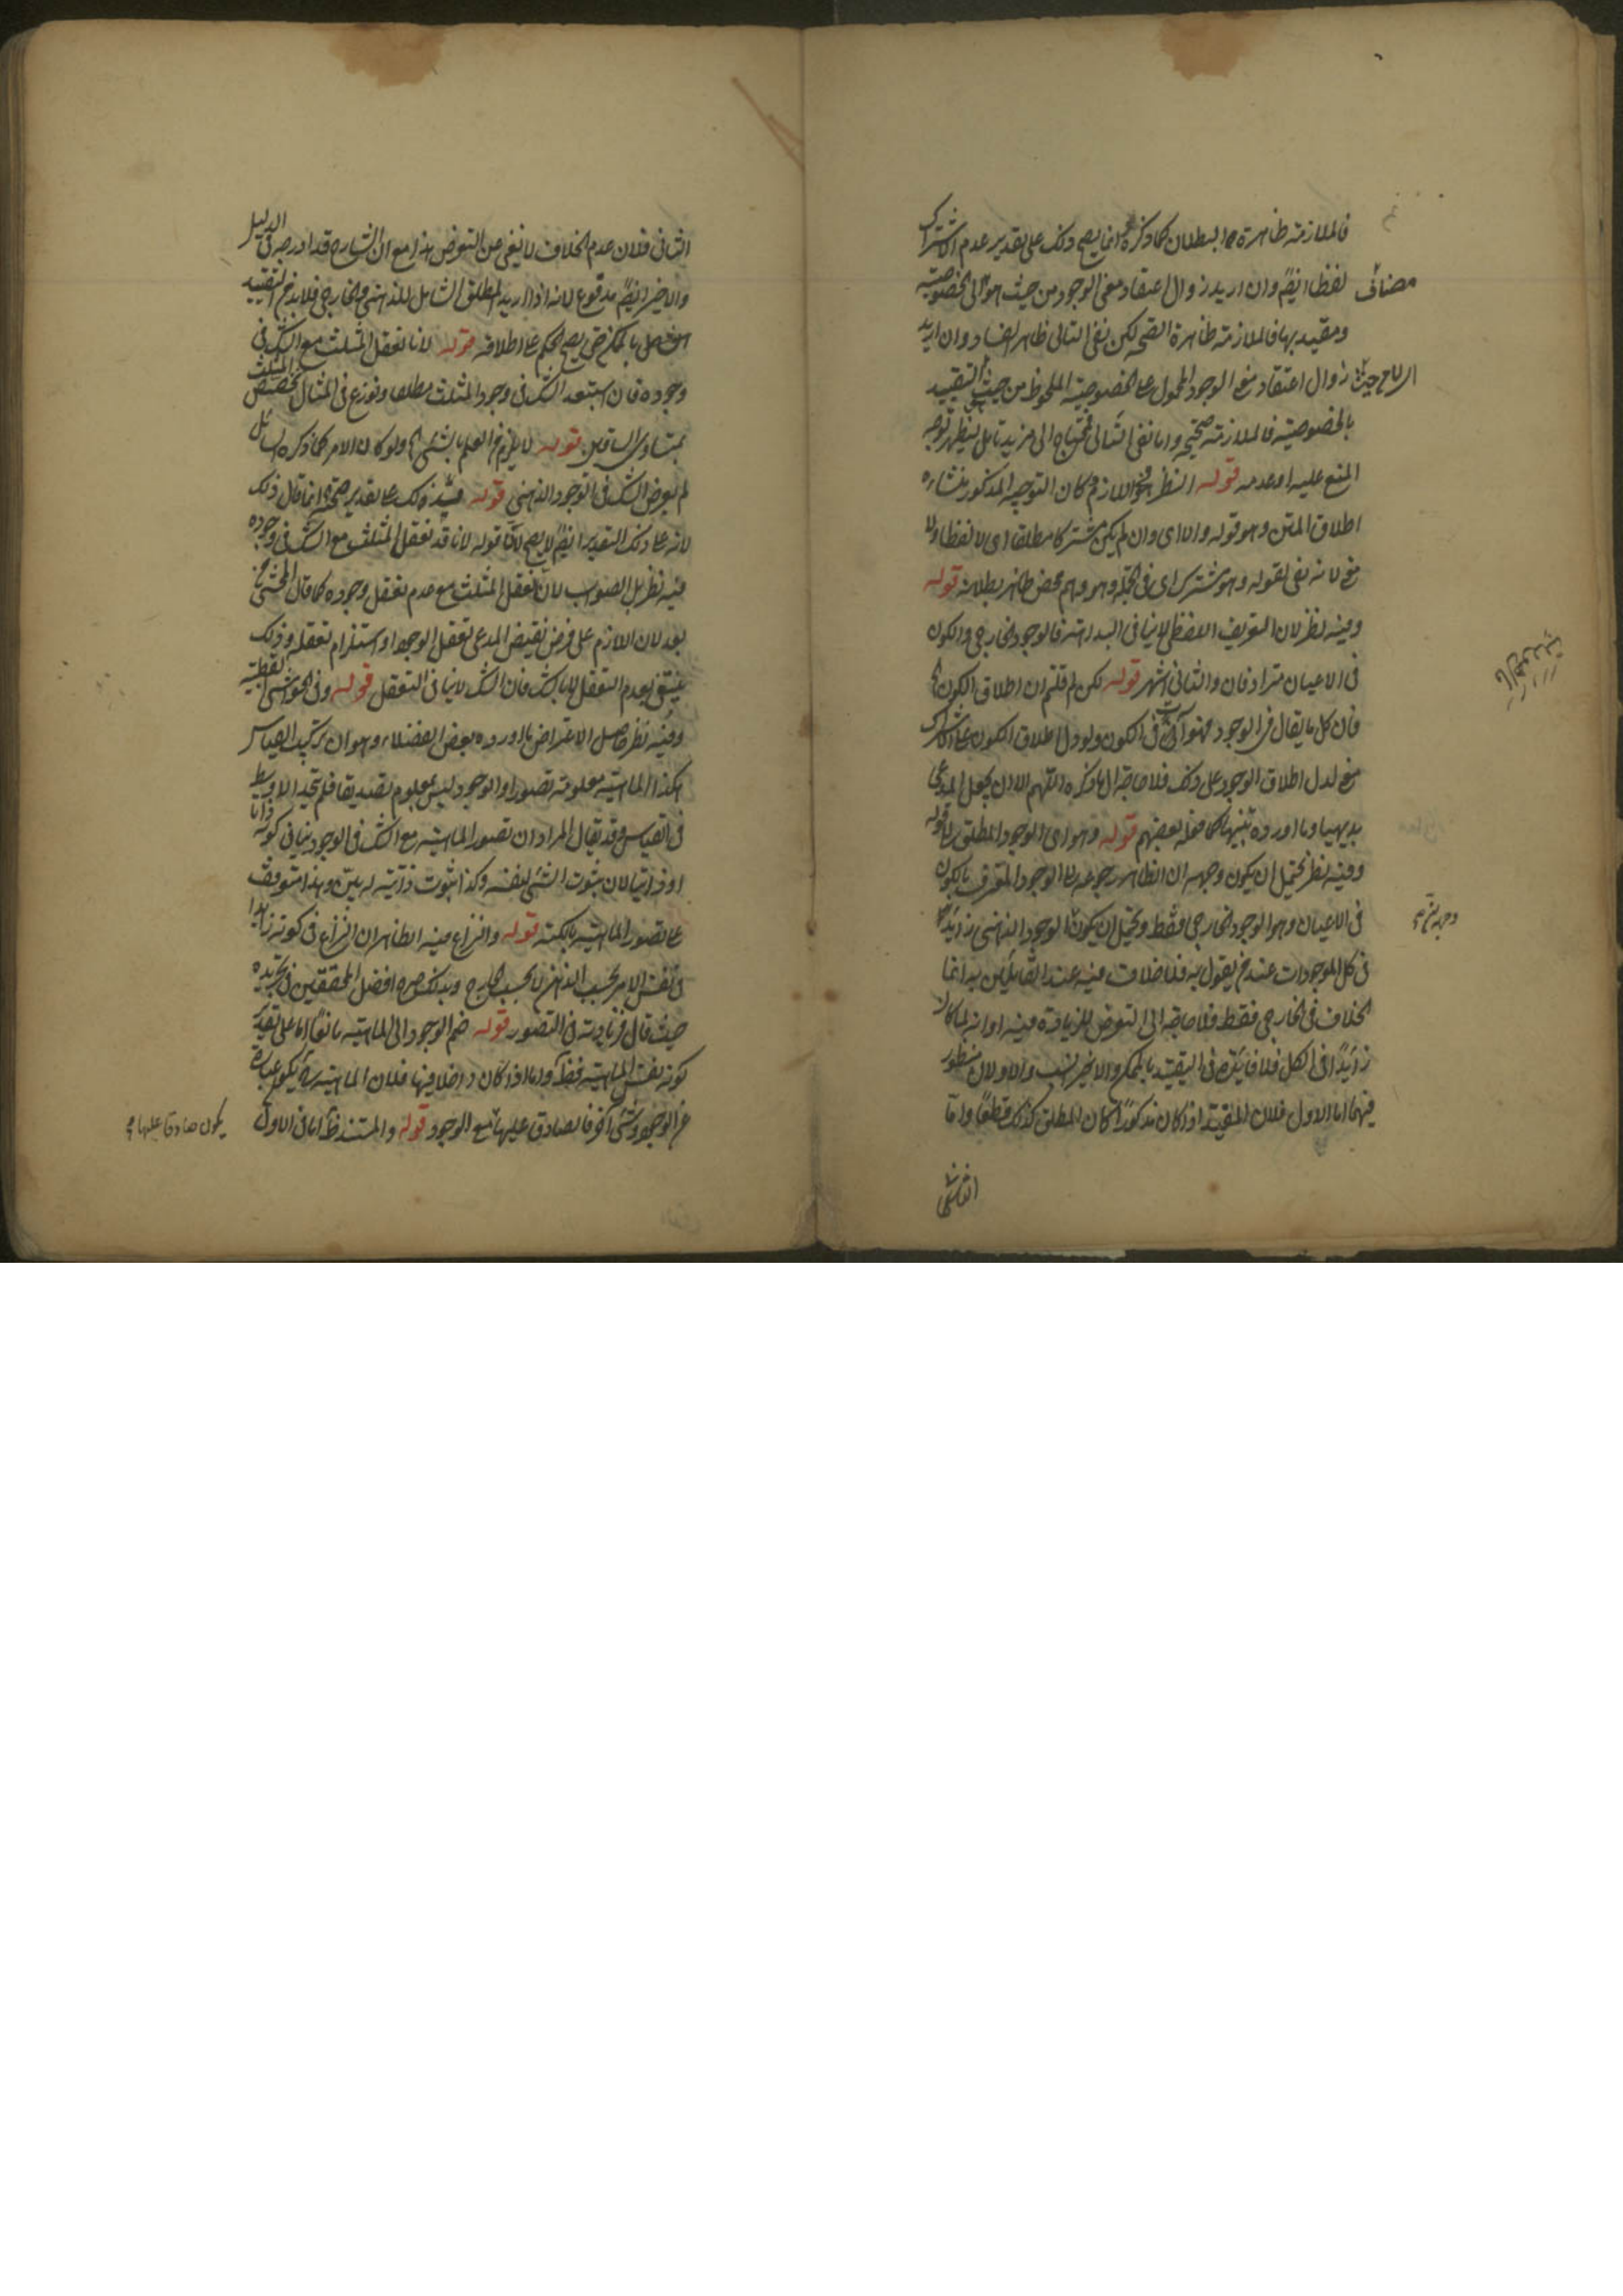 فالملازمة ظاهرة البطلان كما ذكره انما يصح ذلك على تقدير عدم الاشتراك
لفظا ايضا وان اريد زوال اعتقاد معنى الوجود من حيث هو الى الخصوصية
مضاف
ومقيد بها فالملازمة ظاهرة الصحة لكن نفى التالى ظاهر الفساد وان اريد
زوال اعتقاد مع الوجود المحمول على الخصوصية الملحوظ من حيث التقييد
بالخصوصية فالملازمة صحيحة واما نفى التالى فمحتاج الى مزيد تامل ليظهر توجه
المنع عليه او عدمه قوله النظر كان التوجيه المذكور منشاءه
اطلاق المتن وهو قوله والا اى وان لم يكن مشتركا مطلقا اى لا لفظا ولا
مع لانه نفى لقوله وهو مشترك اى فى الجملة وهو وهم محض ظاهر بطلانه قوله
وفيه نظر لان التعريف اللفظى لا ينافى البداهة فالوجود الخارجى والكون
فى الاعيان مترادفان والثانى اشهر قوله لكن لم قلتم ان اطلاق الكون
فان كل ما يقال فى الوجود فهو آت فى الكون ولو دل اطلاق الكون على الاشتراك
مع لدل اطلاق الوجود على ذلك فلا حاجة الى ما ذكره اللهم الا ان يجعل المدعى
بديهيا وما اورده تنبيها كما فعله بعضهم قوله وهو اى الوجود المطلق قوله
وفيه نظر يحتمل ان يكون وجهه ان الظاهر رجوعه الى الوجود المعرف بالكون
فى الاعيان وهو الوجود الخارجى فقط ويحتمل ان يكون الوجود الذهنى زائدا
فى كل الموجودات عند من يقول به فلا خلاف فيه عند القائلين به انما
الخلاف فى الخارجى فقط فلا حاجة الى التعرض للزيادة فيه او انه لما كان
زائدا فى الكل فلا فائدة فى التقييد بالممكن والاخير انسب والاولان منظور
فيهما اما الاول فلان المقيد اذا كان مذكورا كان المطلق كذلك قطعا واما
الثانى
الثانى فلان عدم الخلاف لا يغنى عن التعرض هذا مع ان الشارح قد ادرجه فى الدليل
والاخير ايضا مدفوع لانه اذا اريد المطلق الشامل للذهنى والخارجى فلا بد من التقييد
بالممكن حتى يصح الحكم على اطلاقه قوله لانا نعقل المثلث مع الشك فى
وجوده فان استبعد الشك فى وجود المثلث مطلقا ونوزع فى المثال بخصص المثلث
بمتساوى الساقين قوله لا يلزم من العلم بالشىء ولو كان الامر كما ذكره السائل
لم يعرض الشك فى الوجود الذهنى قوله ذلك على تقدير صحته انما قال ذلك
لانه على ذلك التقدير ايضا لا يصح قوله لانا قد نعقل المثلث مع الشك فى وجوده
فيه نظر بل الصواب لانا نعقل المثلث مع عدم تعقل وجوده كما قال المحشى
بعد لان اللازم على فرض نقيض المدعى تعقل الوجود او استلزام تعقله وذلك
ينتفى بعدم التعقل لا بالشك فان الشك لا ينافى التعقل قوله وفى الحواشى القطبية
وفيه نظر حاصل الاعتراض ما اورده بعض الفضلاء وهو ان تركيب القياس
هكذا الماهية معلومة تصورا والوجود ليس بمعلوم تصديقا فلم يتحد الاوسط
فى القياس وقد يقال المراد ان تصور الماهية مع الشك فى الوجود ينافى كونه ذاتا
او ذاتيا لان ثبوت الشىء لنفسه وكذا ثبوت ذاتيه له بين وهذا متوقف
على تصور الماهية بالكنه قوله والنزاع فيه الظاهر ان النزاع فى كونه زائدا
فى نفس الامر بحسب الذهن لا بحسب الخارج وبذلك صرح افضل المحققين فى تجريده
حيث قال فزيادته فى التصور قوله ضم الوجود الى الماهية مانعا اما على تقدير
كونه نفس الماهية فظ واما اذا كان داخلا فيها فلان الماهية يكون عبارة
عن الوجود وشىء آخر فالصادق عليها مع الوجود قوله والمستند اما فى الاول
يكون صادقا عليها